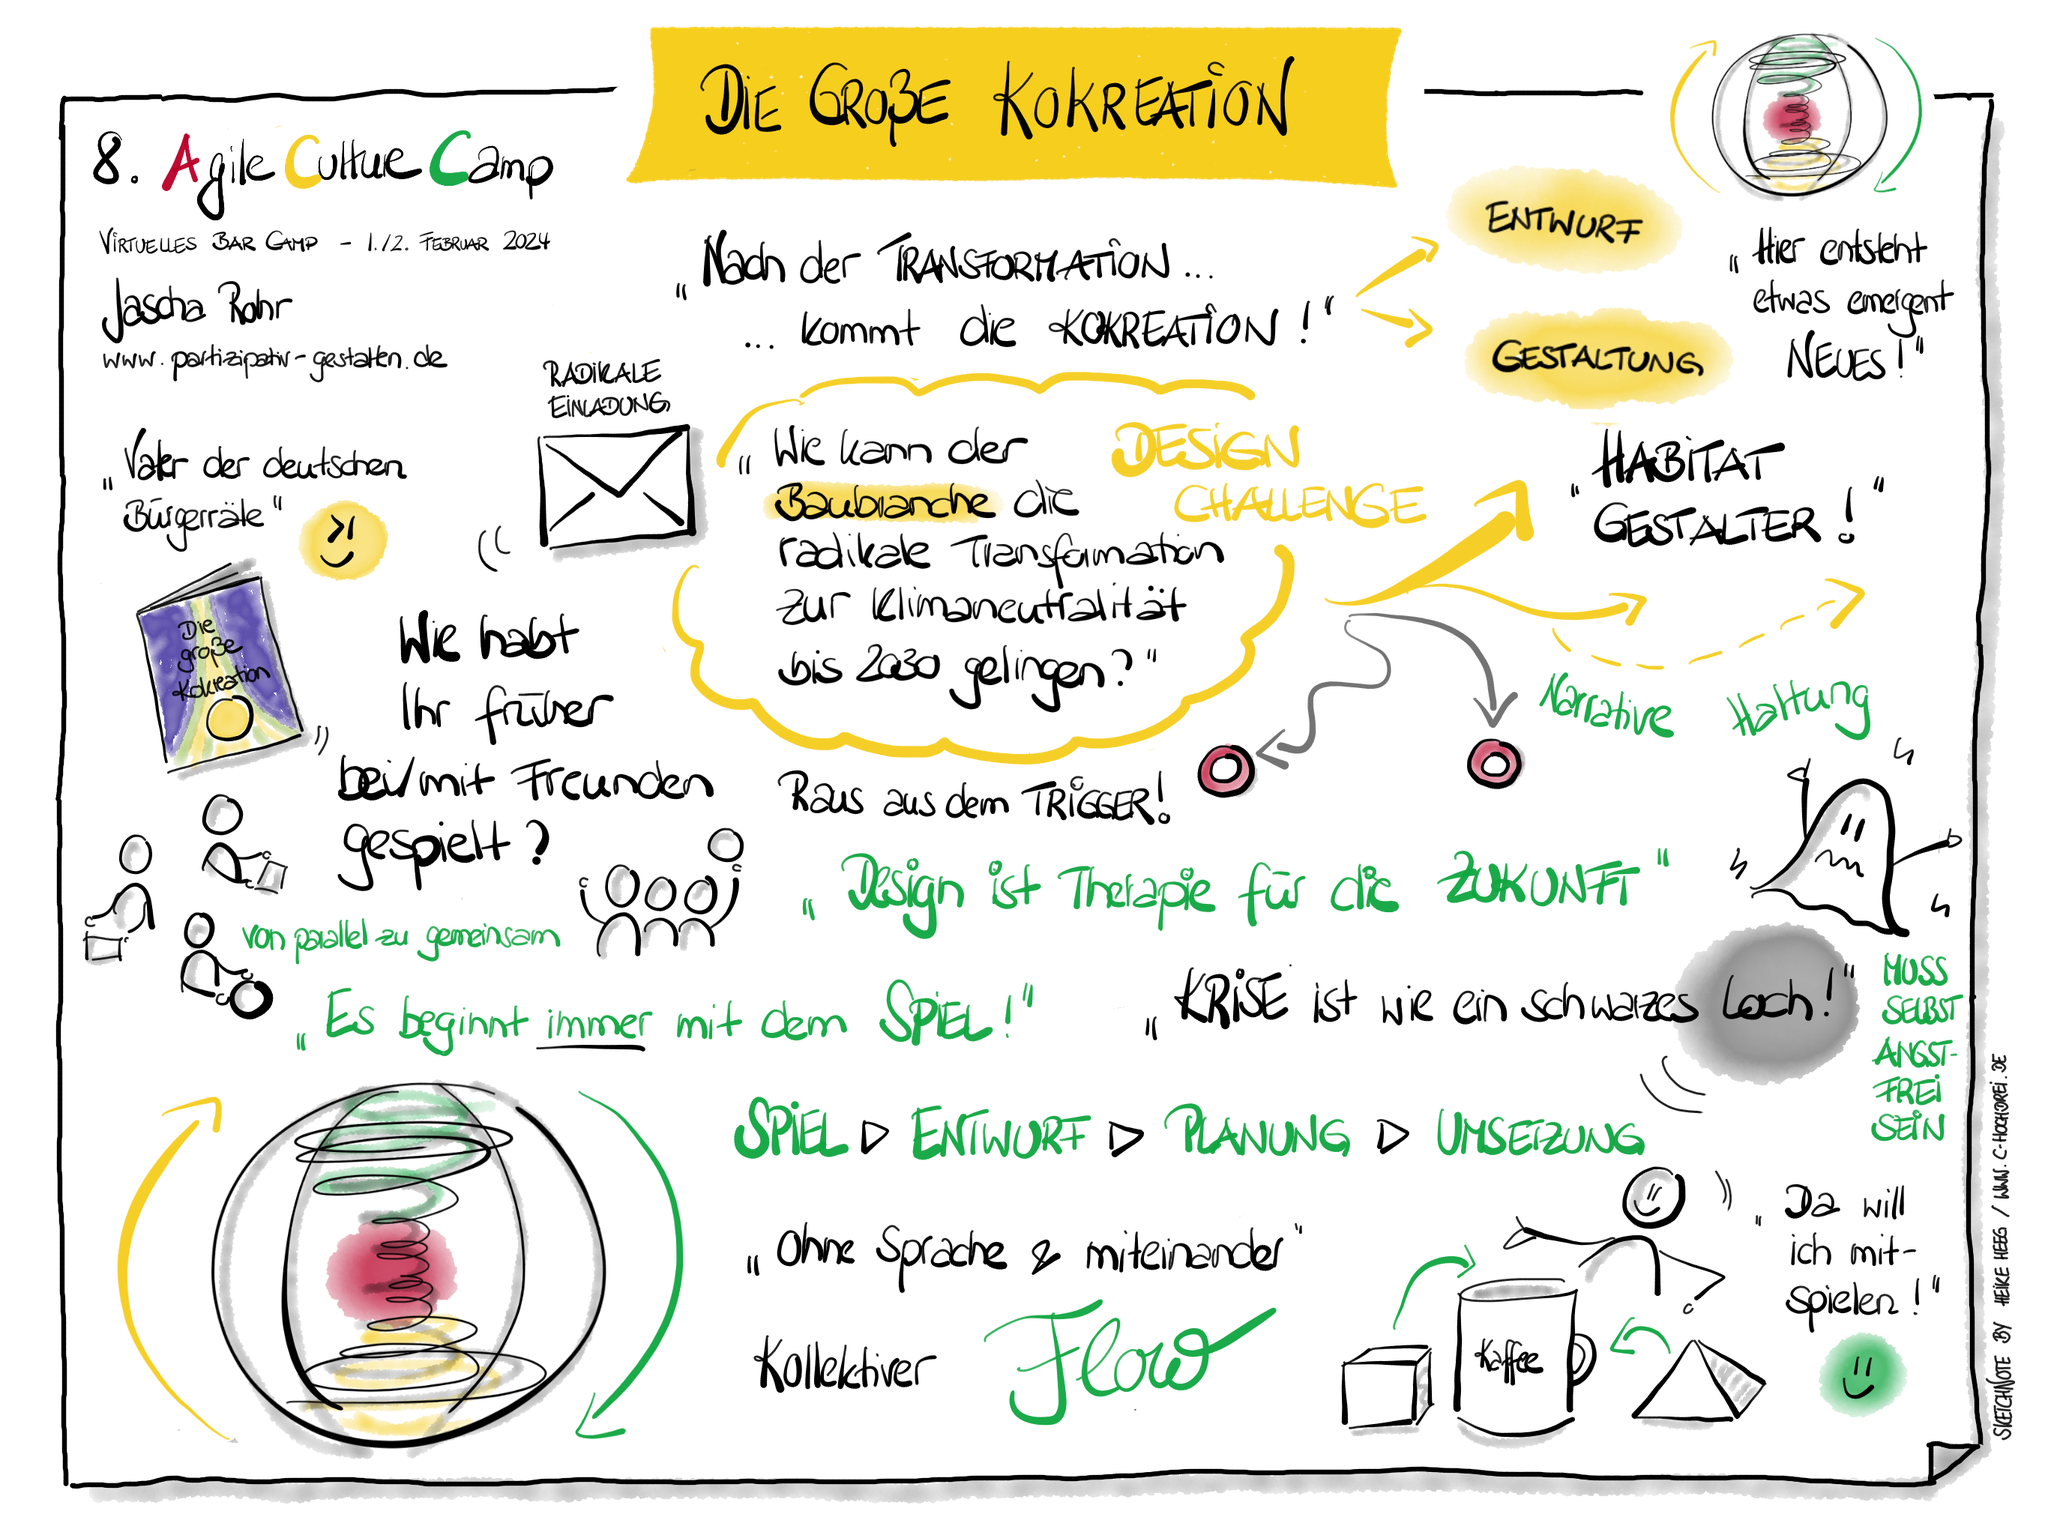 DIE GROßE KOKREATION
8. Agile Culture Camp
VIRTUELLES BAR CAMP - 1./2. FEBRUAR 2024
Jascha Rohr
www.partizipativ-gestalten.de
„Vater der deutschen
Bürgerräte"
Die
große
Kokreation
RADIKALE
EINLADUNG
„Nach der TRANSFORMATION...
... kommt die KOKREATION!"
ENTWURF
GESTALTUNG
„Hier entsteht
etwas emergent
NEUES!"
„Wie kann der
Baubranche die
radikale Transformation
zur Klimaneutralität
bis 2030 gelingen?"
DESIGN
CHALLENGE
„HABITAT
GESTALTER!"
Narrative
Haltung
Wie habt
Ihr früher
bei/mit Freunden
gespielt?
Raus aus dem TRIGGER!
von parallel zu gemeinsam
„Design ist Therapie für die ZUKUNFT"
„Es beginnt immer mit dem SPIEL!"
„KRISE ist wie ein schwarzes Loch!"
MUSS
SELBST
ANGST-
FREI
SEIN
SPIEL ▷ ENTWURF ▷ PLANUNG ▷ UMSETZUNG
„Ohne Sprache & miteinander"
Kollektiver Flow
Kaffee
„Da will
ich mit-
spielen!"
SKETCHNOTE BY HEIKE HEEG / WWW.C-HOCHDREI.DE